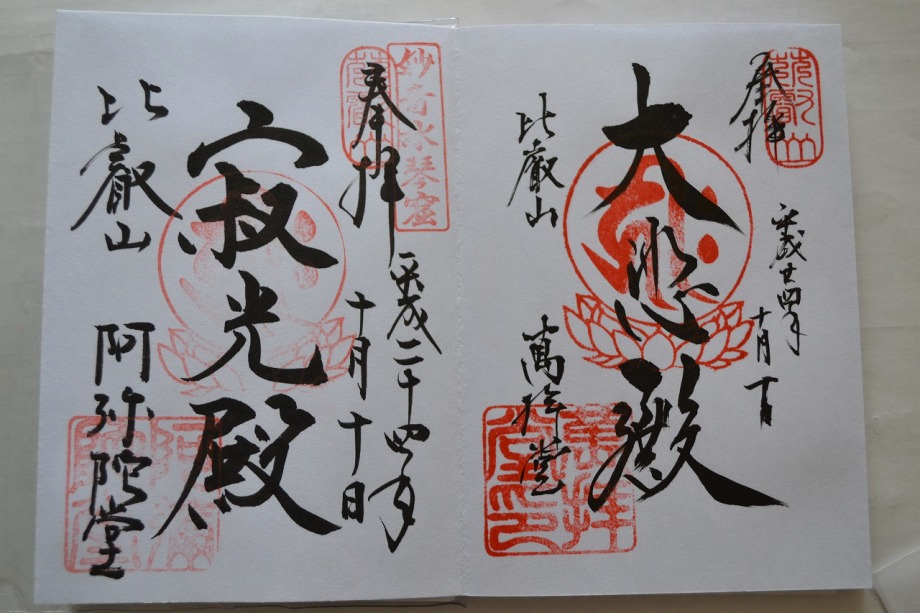 奉拝
平成廿四年
十月十日
大悲殿
比叡山
萬拝堂
萬拝堂印
妙音水琴窟
奉拝
平成二十四年
十月十日
寂光殿
比叡山
阿弥陀堂